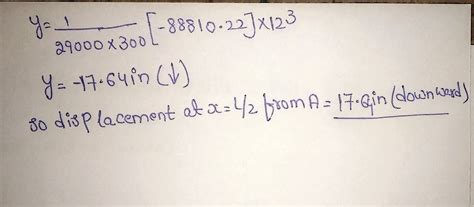 y= 1 / 29000×300 [-88810.22]×12³
y=-17.64in(↓)
so displacement at x=L/2 from A = 17.6in(downward)